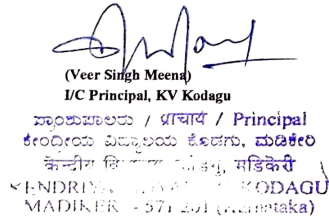 (Veer Singh Meena)
I/C Principal, KV Kodagu
ಪ್ರಾಂಶುಪಾಲರು / प्राचार्य / Principal
ಕೇಂದ್ರೀಯ ವಿದ್ಯಾಲಯ ಕೊಡಗು, ಮಡಿಕೇರಿ
केन्द्रीय मडिकेरी
KODAGU
MADIKER